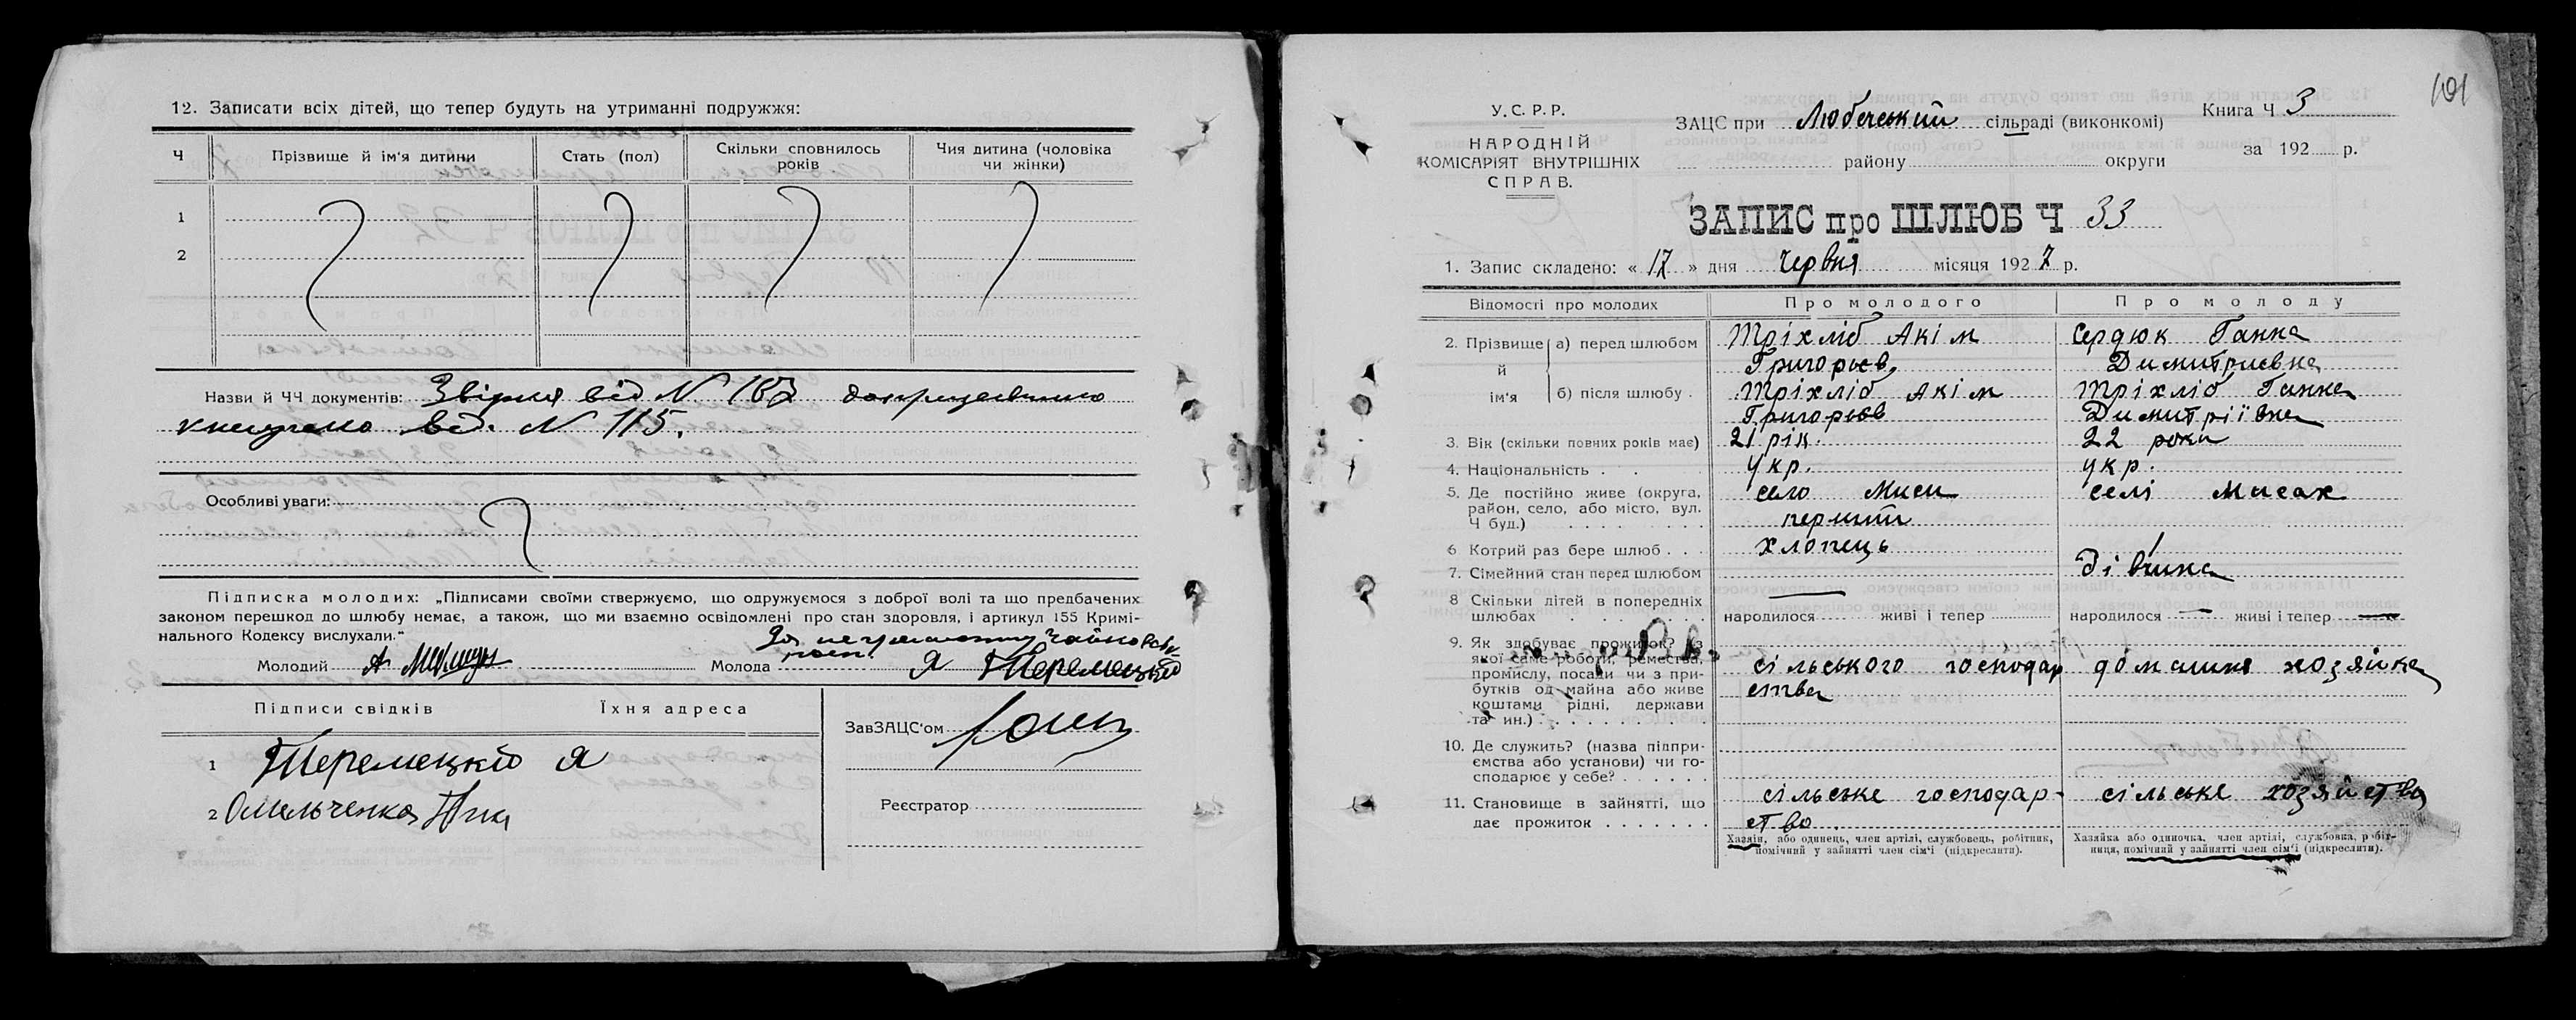 12. Записати всіх дітей, що тепер будуть на утриманні подружжя:
Ч Прізвище й ім'я дитини Стать (пол) Скільки сповнилось років Чия дитина (чоловіка чи жінки)
1
2
Назви й ЧЧ документів: від N
від. N 115.
Особливі уваги:
Підписка молодих: „Підписами своїми стверджуємо, що одружуємося з доброї волі та що предбачених
законом перешкод до шлюбу немає, а також, що ми взаємно освідомлені про стан здоровля, і артикул 155 Кримі-
нального Кодексу вислухали."
За неграмотну
Молодий А Молода Я Шеремецкій
Підписи свідків Їхня адреса
ЗавЗАЦС'ом
1 Шеремецкій Я
Реєстратор
2 Омельченко
101
У.С.Р.Р.
НАРОДНІЙ
КОМІСАРІЯТ ВНУТРІШНІХ
СПРАВ.
ЗАЦС при Любечський сільраді (виконкомі) Книга Ч 3
району округи за 192 р.
ЗАПИС про ШЛЮБ Ч 33
1. Запис складено: « 17 » дня червня місяця 1927 р.
Відомості про молодих Про молодого Про молоду
2. Прізвище й ім'я а) перед шлюбом Тріхліб Акім Сердюк Ганна
Григорьев. Димитриевна
б) після шлюбу . Тріхліб Акім Тріхліб Ганна
Григорьев Димитріївна
3. Вік (скільки повних років має) 21 рік. 22 роки
4. Національність . . укр. укр.
5. Де постійно живе (округа, село Миси селі Мисах
район, село, або місто, вул.
Ч буд.) . . . . . . . .
6 Котрий раз бере шлюб . . . хлопець
7. Сімейний стан перед шлюбом Дівчина
8 Скільки дітей в попередніх
шлюбах народилося живі і тепер народилося — живі і тепер —
9. Як здобуває прожиток? Із
якої саме роботи, ремества, сільського господар домашня хозяйка
промислу, посади чи з при- ства
бутків од майна або живе
коштами рідні, держави
та ин.) . . . . . . . .
10. Де служить? (назва підпри-
ємства або установи) чи го-
сподарює у себе? . . . . . .
11. Становище в зайнятті, що сільське господар- сільське хозяйство
дає прожиток . . . . . . . ство
Хазяїн, або одинець, член артілі, службовець, робітник, Хазяйка або одиночка, член артілі, службовка, робіт-
помічний у зайнятті член сім'ї (підкреслити). ниця, помічний у зайнятті член сім'ї (підкреслити).